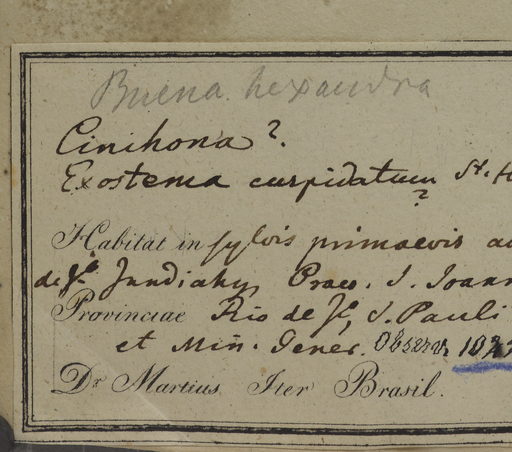 Buena hexandra
Cinihona ?.
Exostema cuspidatum St. H
?
Habitat in sylvis primaevis ad
de Jundiahy, Praec. S. Joann
Provinciae Rio de Jo, S. Pauli
et Min. Gener. Observ. 102
Dr. Martius Iter Brasil.